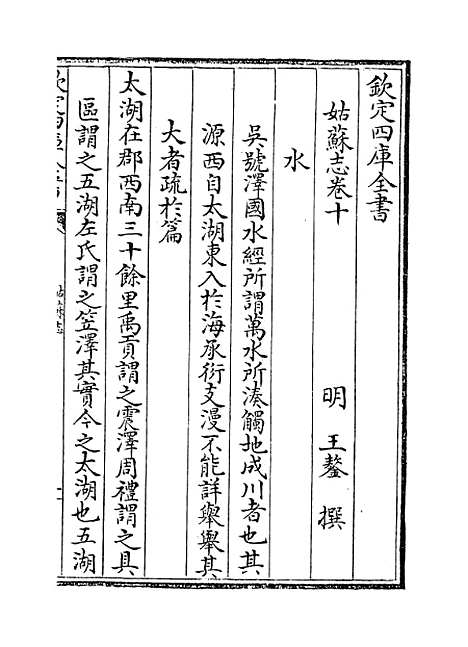 欽定四庫全書
姑蘇志卷十
明 王鏊 撰
水
吳號澤國水經所謂萬水所湊觸地成川者也其
源西自太湖東入於海承衍支漫不能詳舉舉其
大者疏於篇
太湖在郡西南三十餘里禹貢謂之震澤周禮謂之具
區謂之五湖左氏謂之笠澤其實今之太湖也五湖